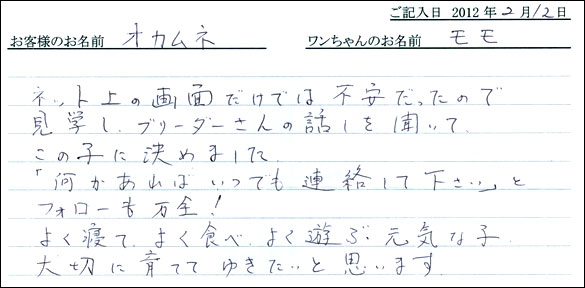 ご記入日 2012年2月12日
お客様のお名前 オカムネ ワンちゃんのお名前 モモ
ネット上の画面だけでは不安だったので
見学し、ブリーダーさんの話しを聞いて、
この子に決めました
「何かあればいつでも連絡して下さい」と
フォローも万全!
よく寝て、よく食べ、よく遊ぶ元気な子
大切に育ててゆきたいと思います